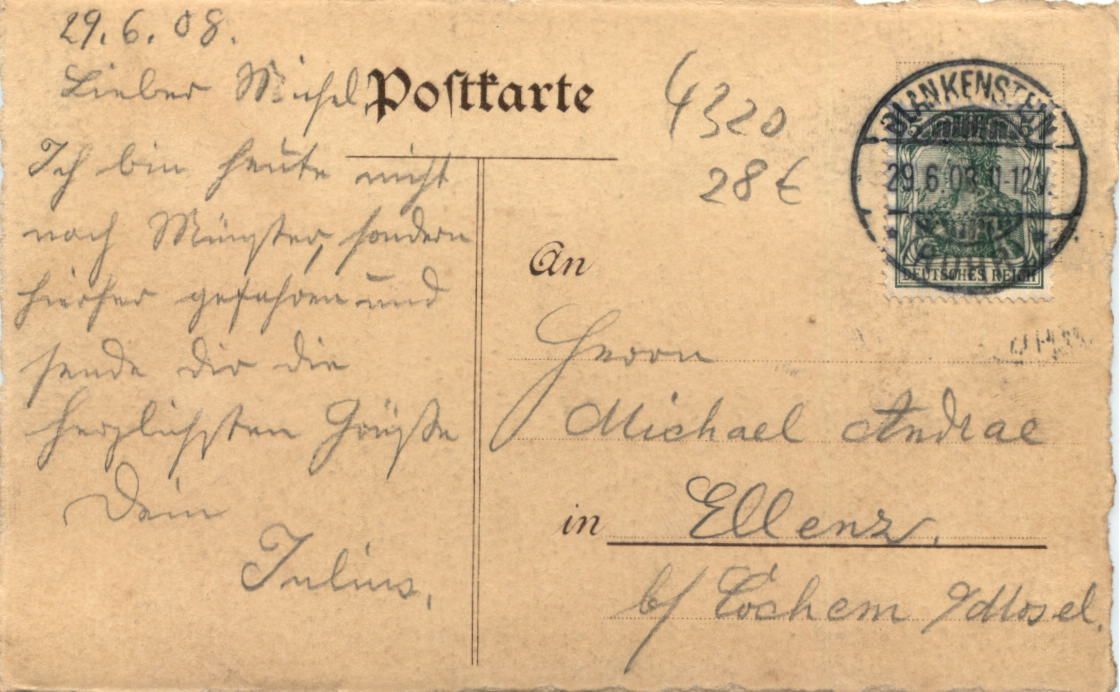 29.6.08.
Lieber Michel,
Ich bin heute nicht
nach Münster, sondern
hierher gefahren und
sende dir die
herzlichsten Grüße
Dein
Julius.
Postkarte
4320
28 €
BLANKENSTEIN
29.6.08.11-12V.
RUHR
DEUTSCHES REICH
An
Herrn
Michael Andrae
in Ellenz.
b/ Cochem a/Mosel.